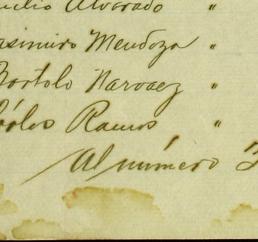 Emilio Alvarado "
Casimiro Mendoza "
Bartolo Narvaez "
Carlos Ramos "
Al número